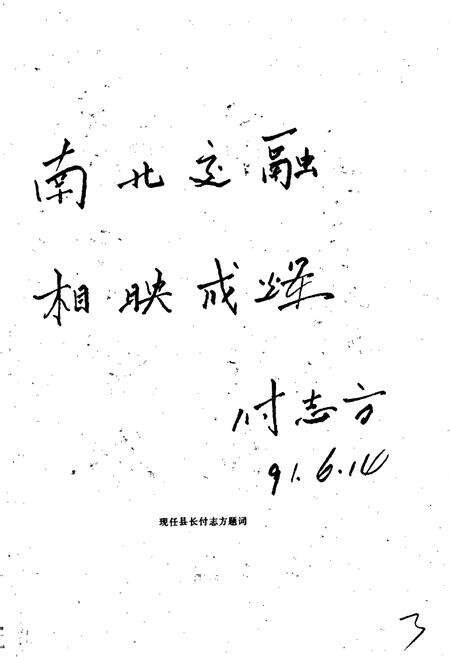 南北交融
相映成
付志方
91.6.14
现任县长付志方题词
3